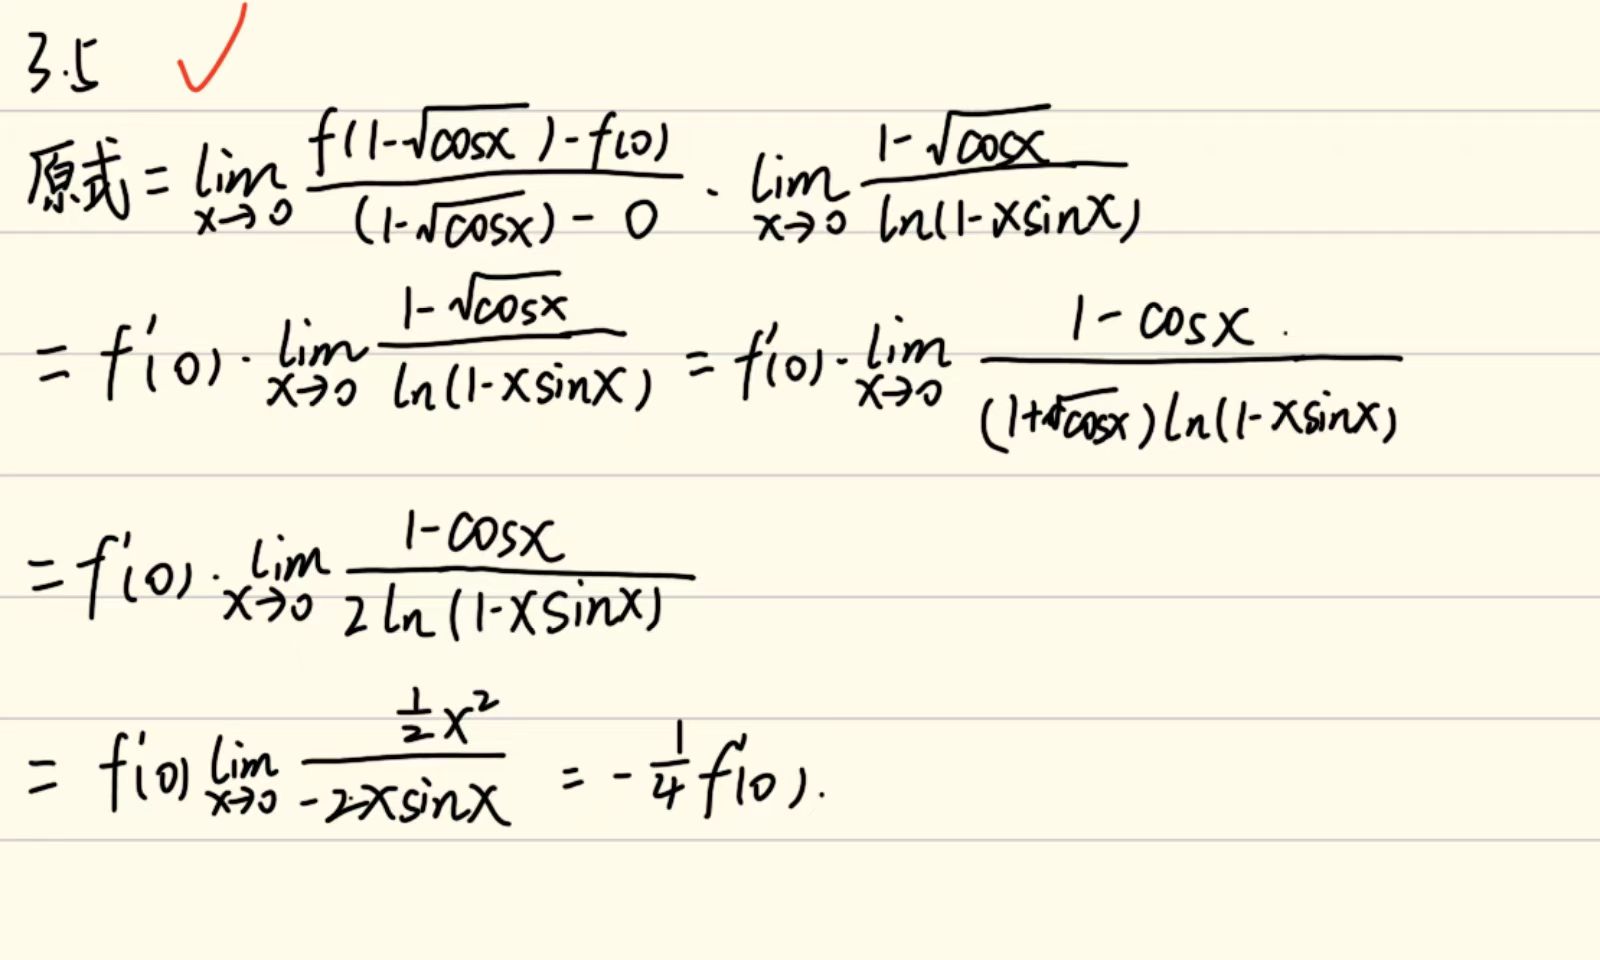 3.5 ✓
原式 = lim_{x→0} \frac{f(1-\sqrt{cosx})-f(0)}{(1-\sqrt{cosx})-0} · lim_{x→0} \frac{1-\sqrt{cosx}}{ln(1-xsinx)}
= f'(0) · lim_{x→0} \frac{1-\sqrt{cosx}}{ln(1-xsinx)} = f'(0) · lim_{x→0} \frac{1-cosx}{(1+\sqrt{cosx})ln(1-xsinx)}
= f'(0) · lim_{x→0} \frac{1-cosx}{2ln(1-xsinx)}
= f'(0) lim_{x→0} \frac{\frac{1}{2}x^2}{-2xsinx} = -\frac{1}{4}f'(0).